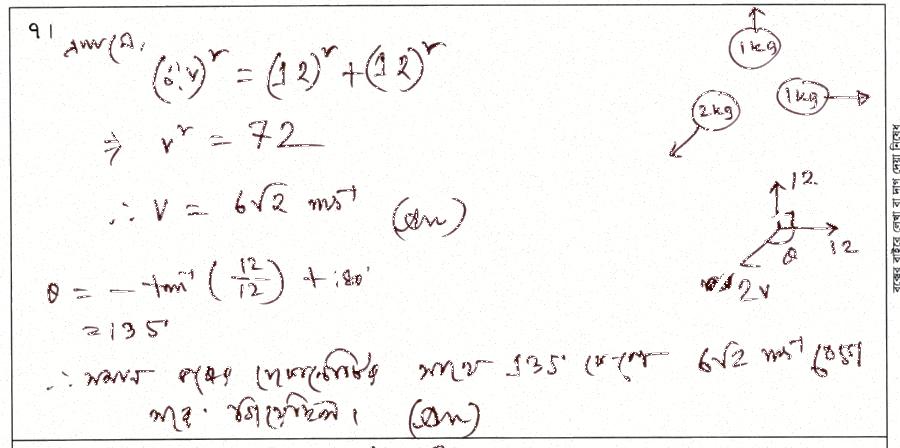 ৭।
(2v)² = (12)² + (12)²
⇒ v² = 72
∴ v = 6√2 ms⁻¹ (Ans)
θ = - tan⁻¹ (12/12) + 180°
= 135°
∴ সাথে 135° কোণে 6√2 ms⁻¹ বেগে
(Ans)
1kg
1kg
2kg
12
12
θ
2v
বক্সের বাইরে লেখা বা দাগ দেয়া নিষেধ